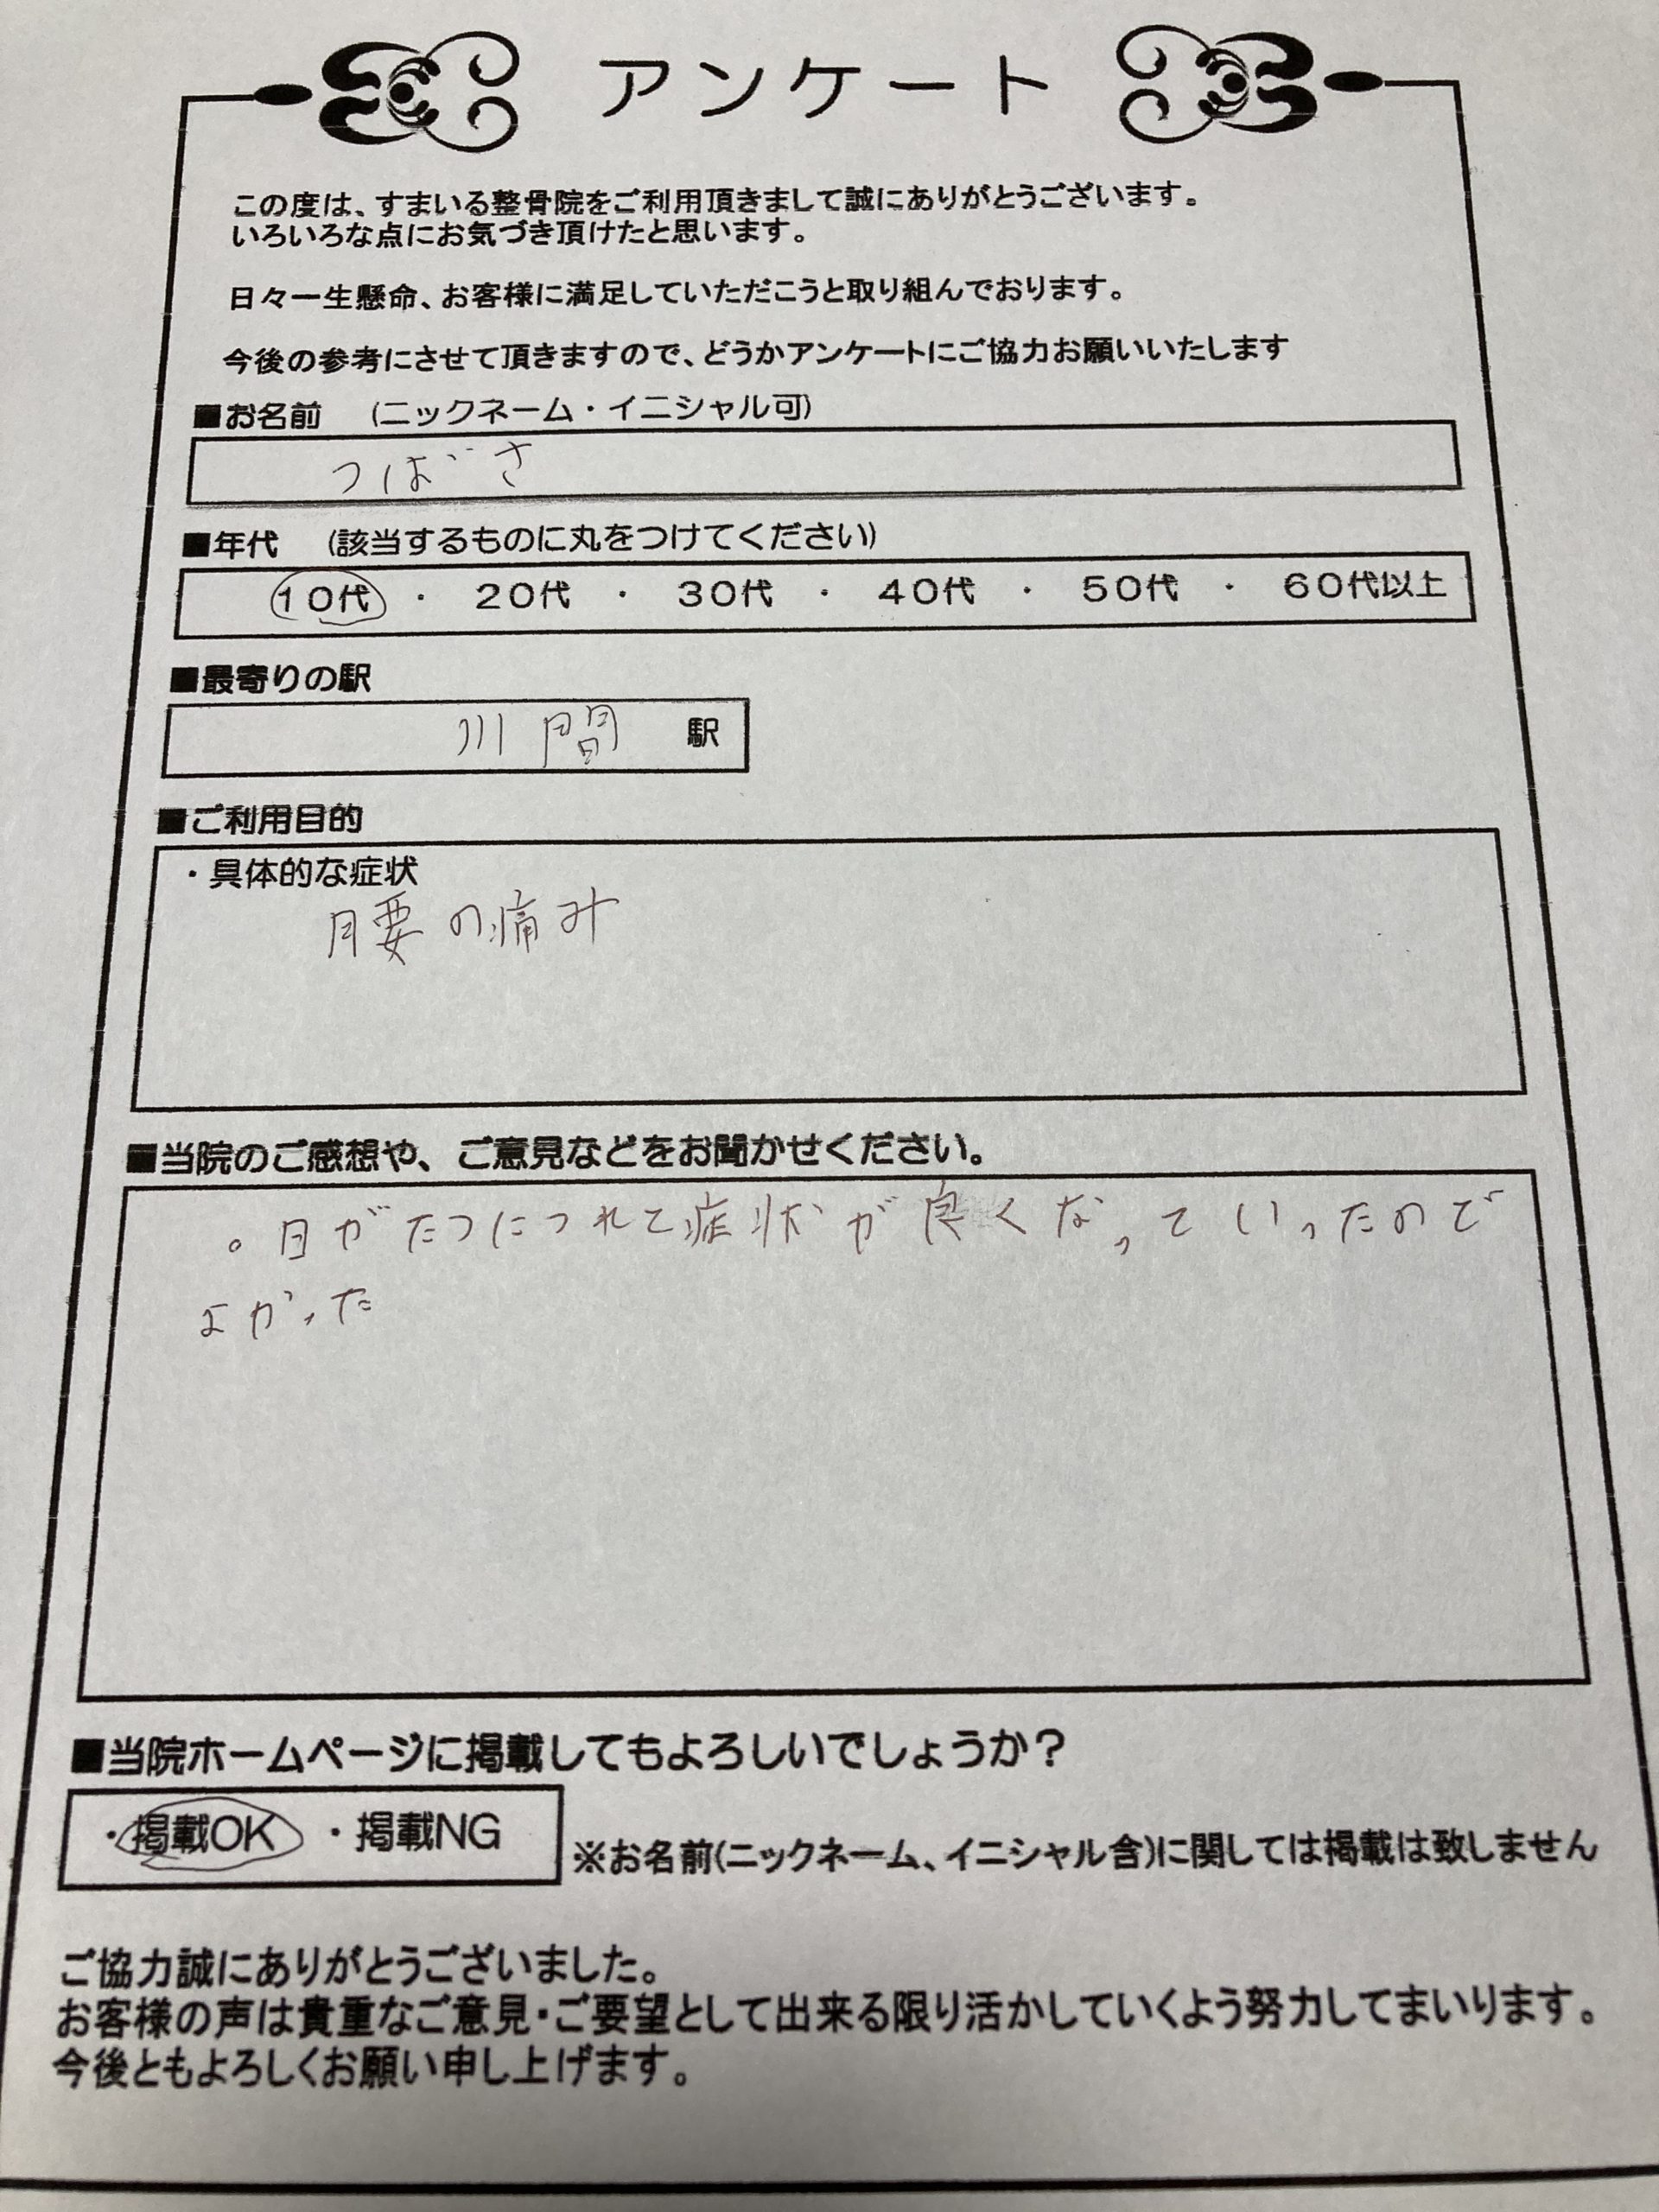 アンケート
この度は、すまいる整骨院をご利用頂きまして誠にありがとうございます。
いろいろな点にお気づき頂けたと思います。
日々一生懸命、お客様に満足していただこうと取り組んでおります。
今後の参考にさせて頂きますので、どうかアンケートにご協力お願いいたします
■お名前　(ニックネーム・イニシャル可)
つばさ
■年代　(該当するものに丸をつけてください)
10代 ・ 20代 ・ 30代 ・ 40代 ・ 50代 ・ 60代以上
■最寄りの駅
川間 駅
■ご利用目的
・具体的な症状
腰の痛み
■当院のご感想や、ご意見などをお聞かせください。
。日がたつにつれて症状が良くなっていったので
よかった
■当院ホームページに掲載してもよろしいでしょうか？
・掲載OK ・掲載NG
※お名前(ニックネーム、イニシャル含)に関しては掲載は致しません
ご協力誠にありがとうございました。
お客様の声は貴重なご意見・ご要望として出来る限り活かしていくよう努力してまいります。
今後ともよろしくお願い申し上げます。